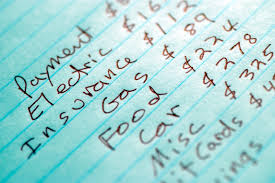 Payment $
Electric $112
Insurance $89
Gas $224
Food $278
Car $325
Misc $
Cards $